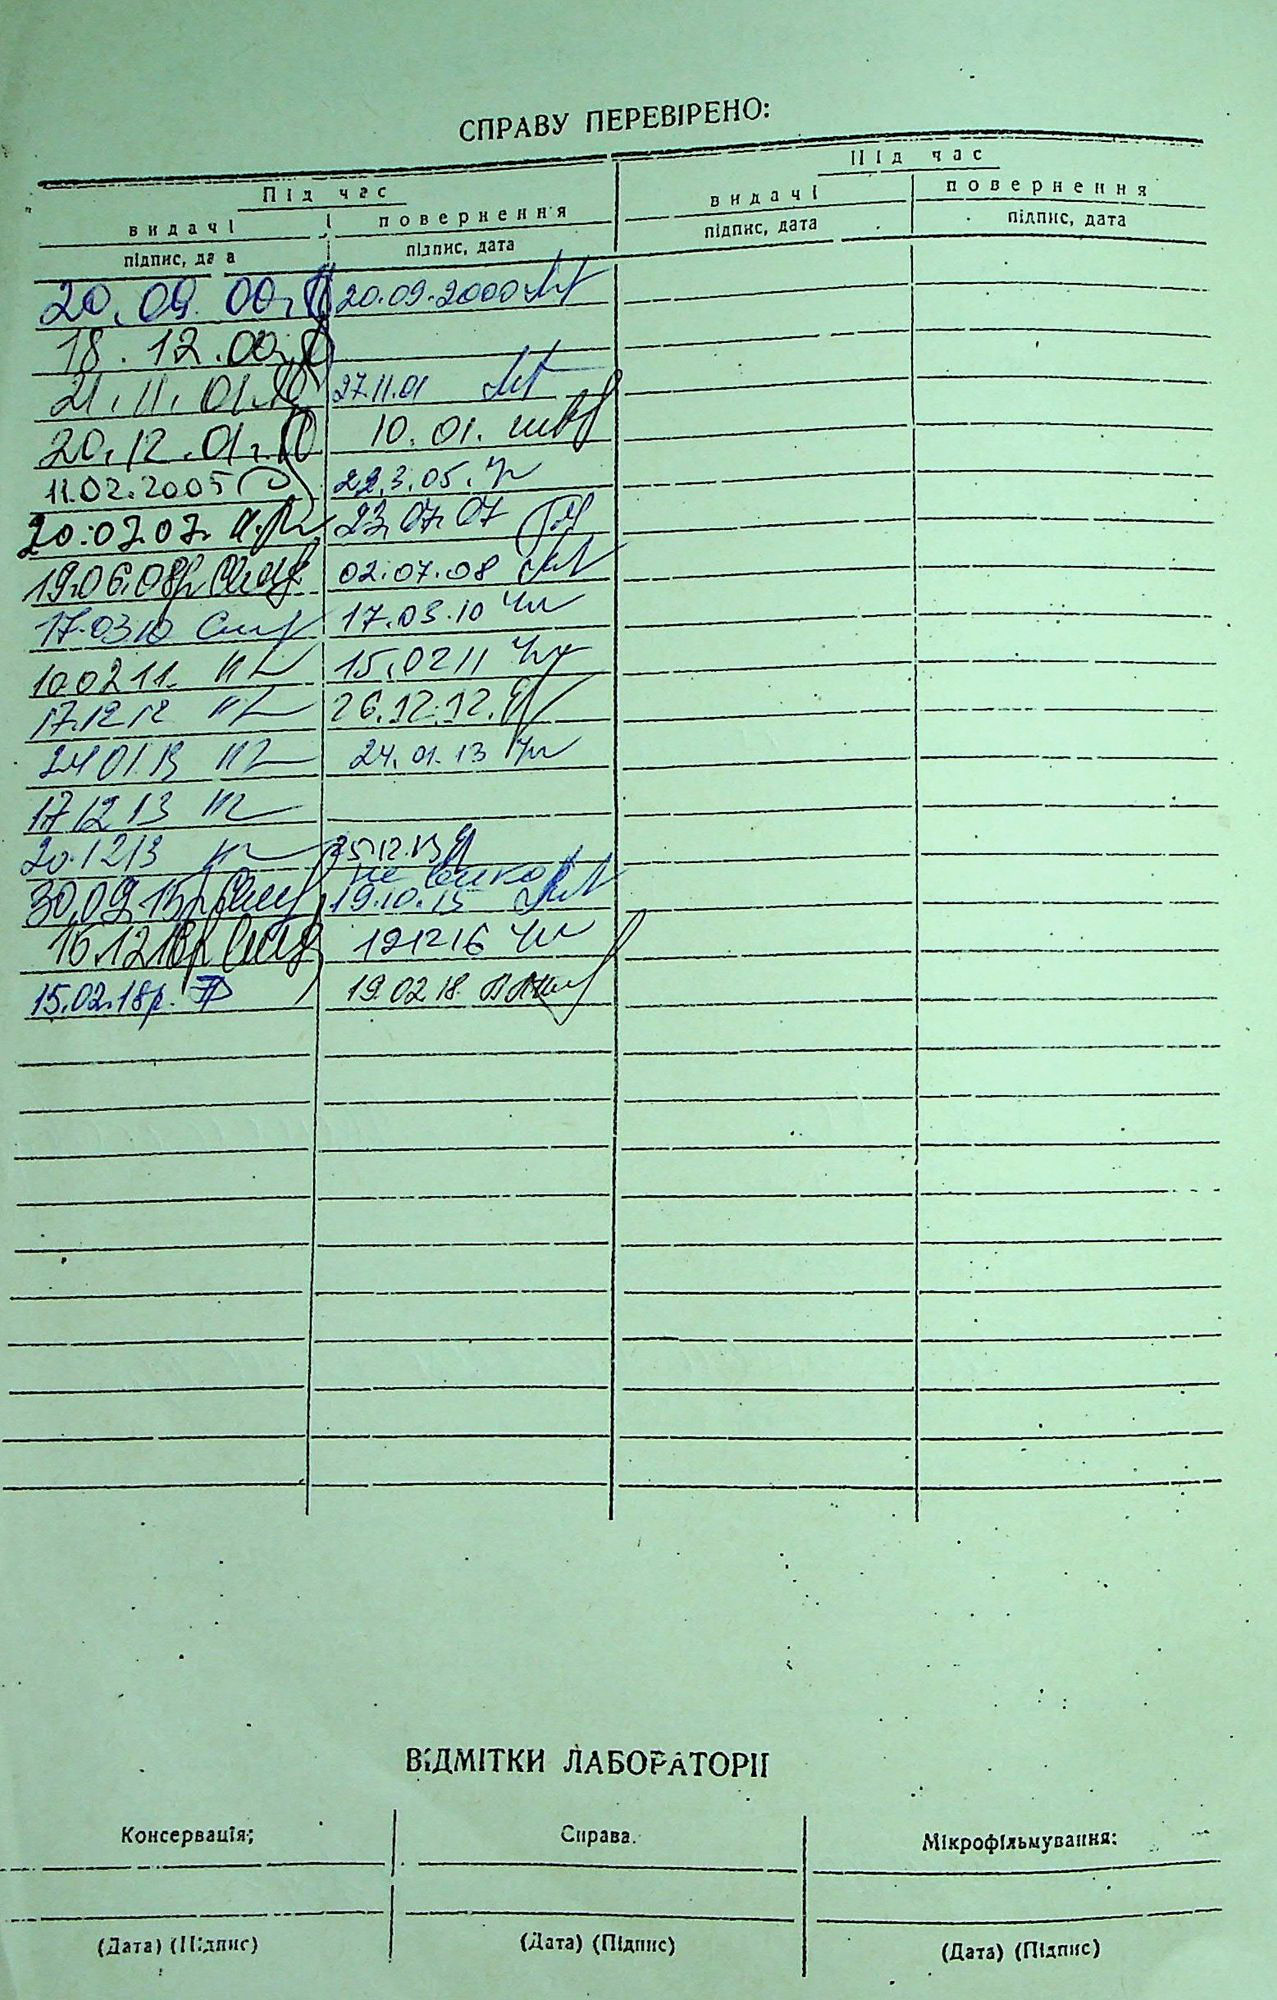 СПРАВУ ПЕРЕВІРЕНО:
Під час Під час
видачі і повернення видачі повернення
підпис, да а підпис, дата підпис, дата підпис, дата
20.09.00 20.09.2000
18.12.00
21.11.01 27.11.01
20.12.01 10.01.
11.02.2005 22.3.05.
20.07.07. 23.07.07
19.06.08р 02.07.08
17.0310 17.03.10
10.02 11. 15.02 11
17.12 12 26.12.12.
24 01.13 24.01.13
17 12 13
20.12 13 25.12.13
не
30.09.15р 19.10.15
16.12 16р 12 12 16
15.02.18р. 19.02 18.
ВІДМІТКИ ЛАБОРАТОРІЇ
Консервація: Справа. Мікрофільмування:
(Дата) (Підпис) (Дата) (Підпис) (Дата) (Підпис)